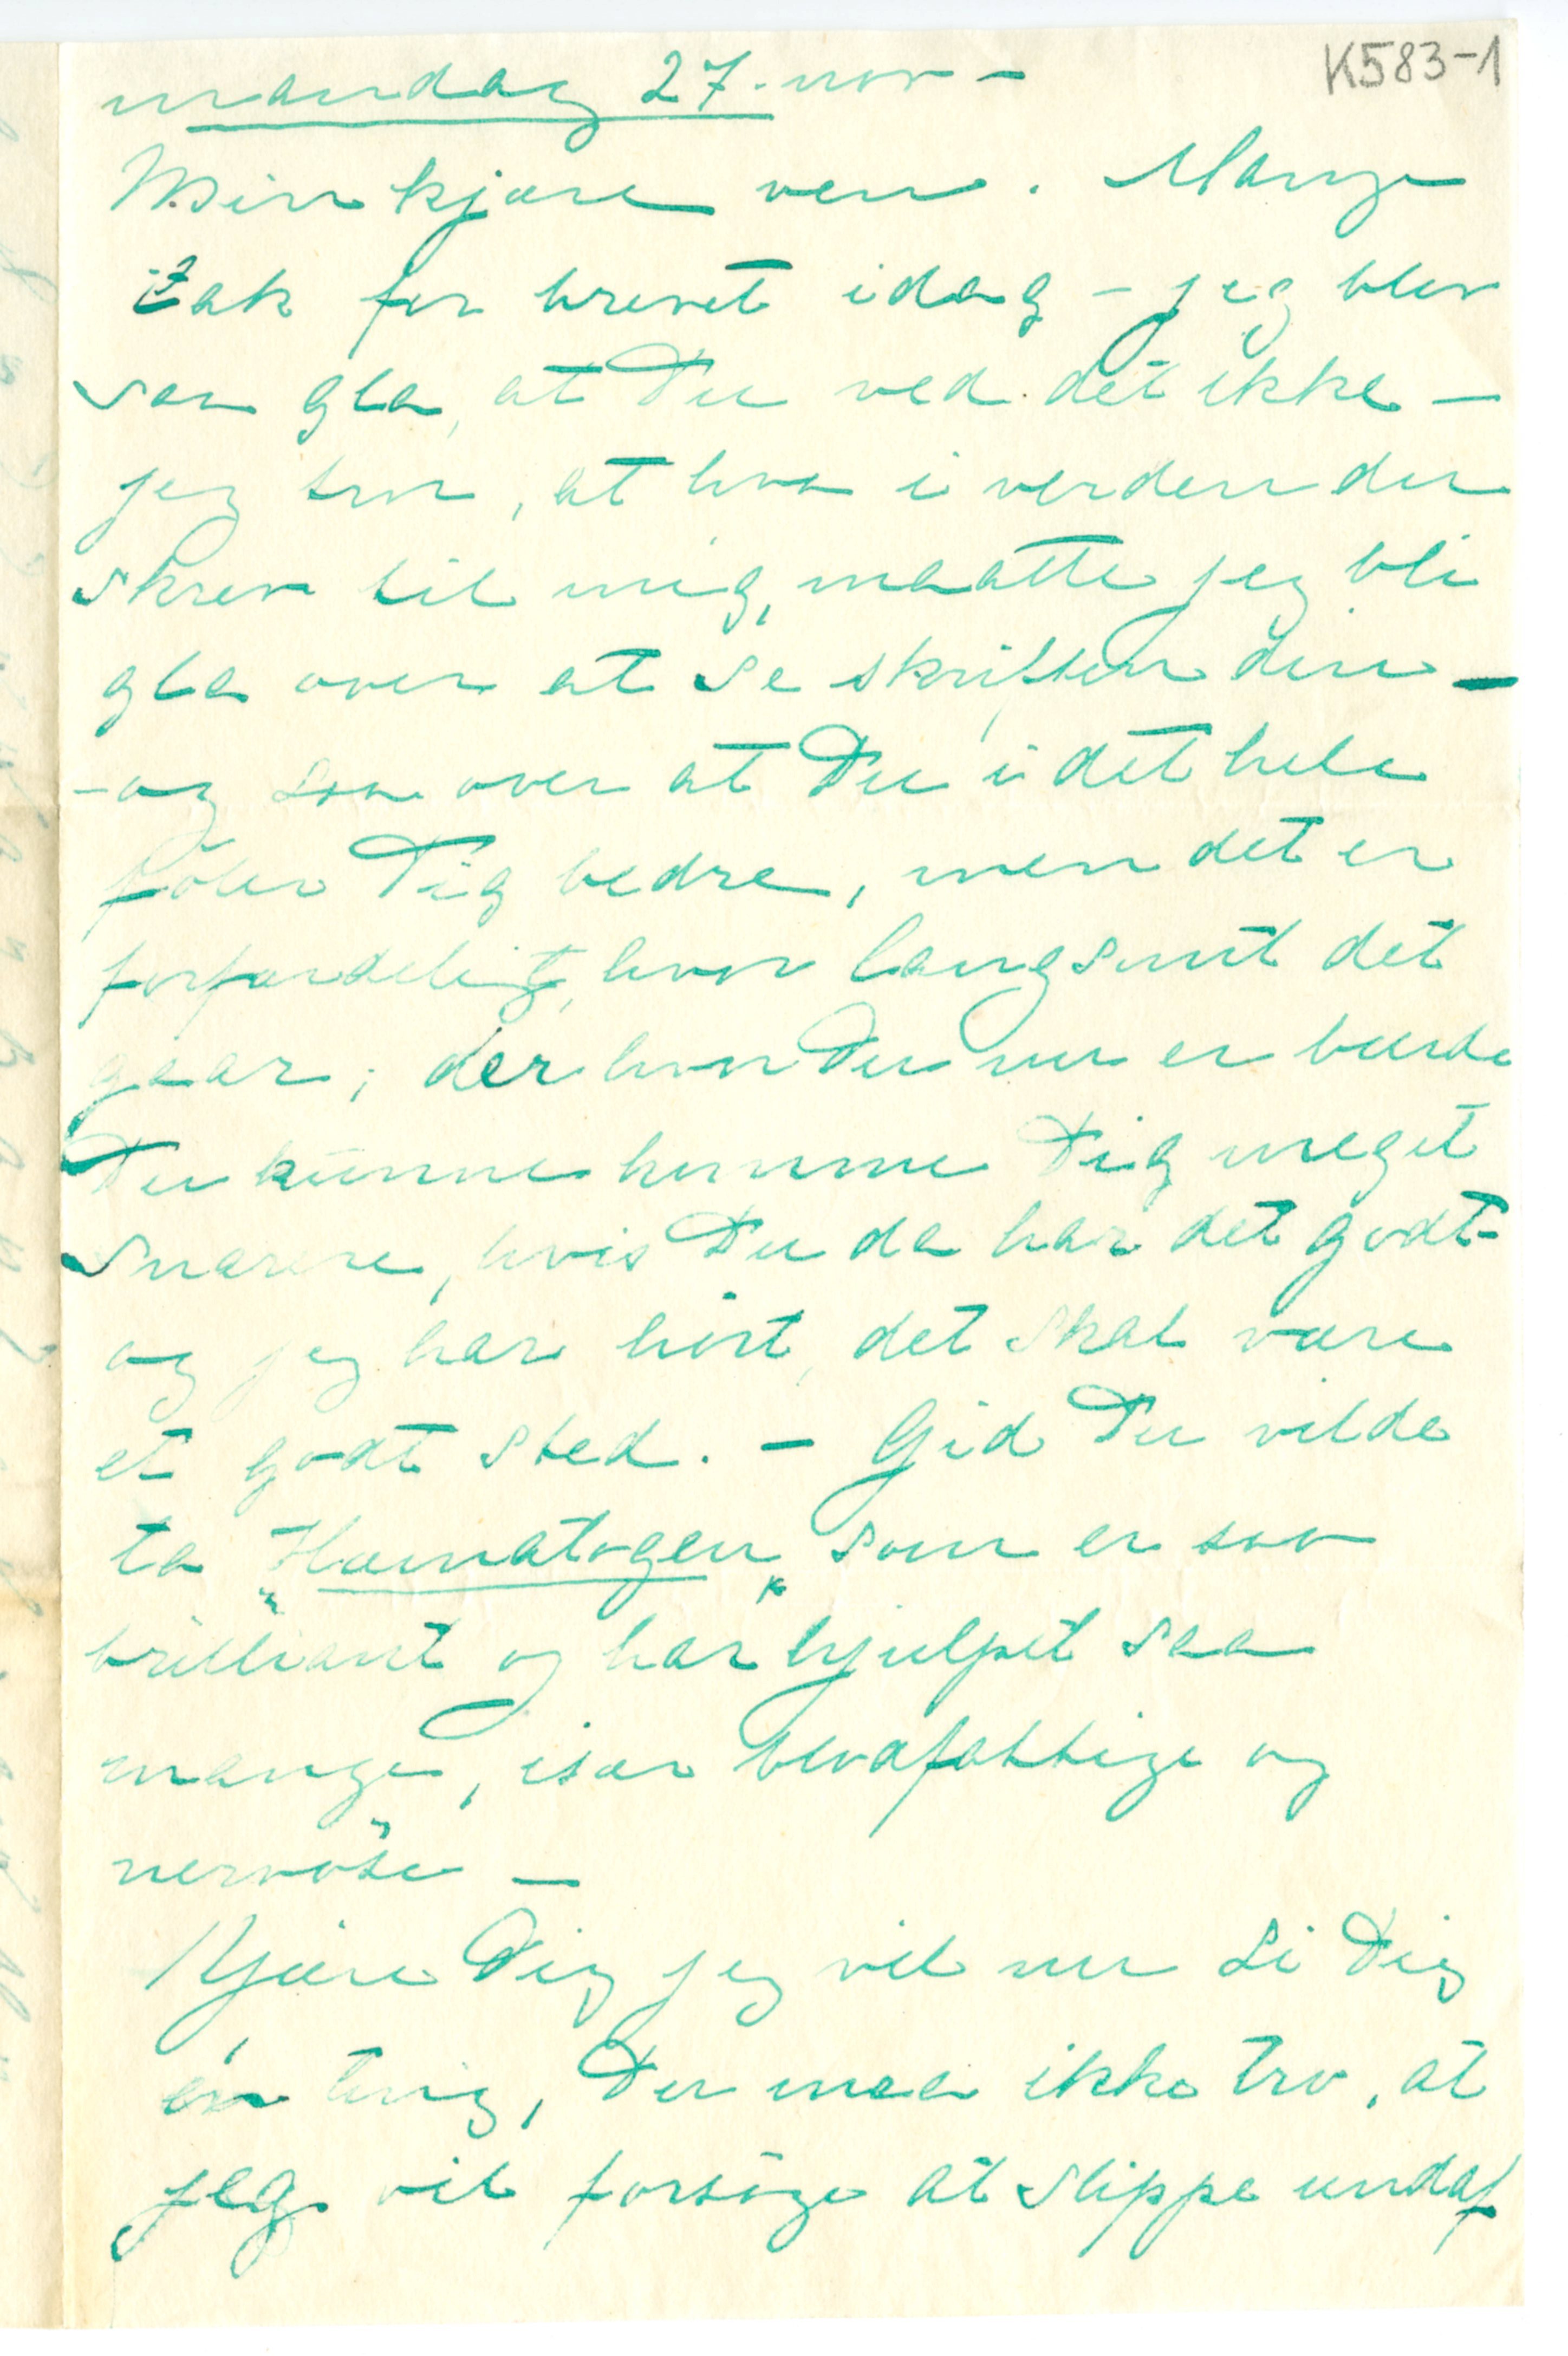 K583-1
mandag 27. nov –
Min kjære ven. Mange
tak for brevet idag – jeg blev
saa gla, at Du ved det ikke –
jeg tror, at hva i verden du
skrev til mig, maatte jeg bli
gla over at se skriften din –
– og saa over at Du i det hele
føler Dig bedre, men det er
forfærdeligt, hvor langsomt det
gaar; der hvor Du nu er burde
Du kunne komme Dig meget
snarere, hvis Du da har det godt –
og jeg har hørt, det skal være
et godt sted. – Gid Du vilde
ta „Hæmatogen“ som er saa
brilliant og har hjulpet saa
mange, især blodfattige og
nervøse –
Kjære Dig jeg vil nu si Dig
én ting, Du maa ikke tro, at
jeg vil forsøge at slippe undaf